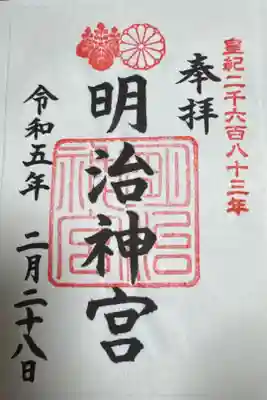 皇紀二千六百八十三年
奉拝
明治神宮
明治神宮
令和五年
二月二十八日